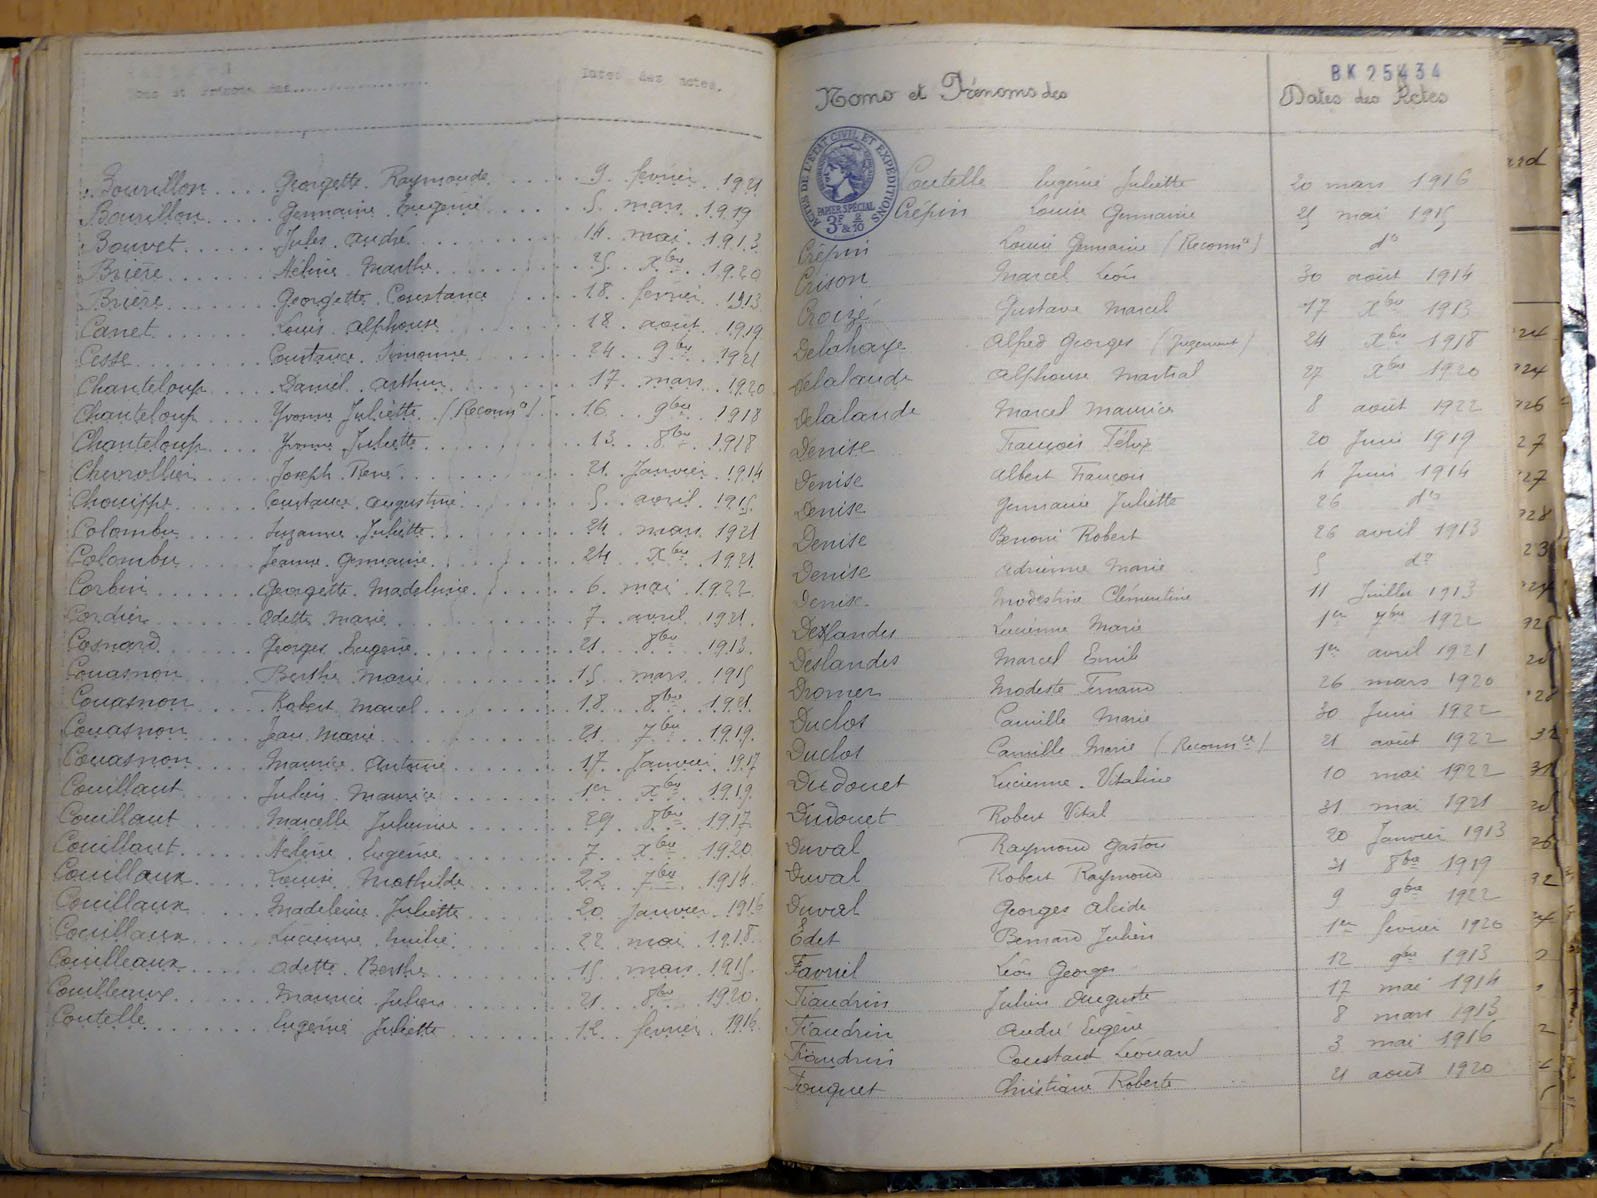 Noms et Prénoms des..................
Dates des actes.
Bourillon.... Georgette Raymonde..... 9 février 1921
Bourillon.... Germaine Eugénie..... 5 mars 1919
Bouvet.... Jules André..... 14 mai 1913
Brière.... Hélène Marthe..... 25 Xbre 1920
Brière.... Georgette Constance.... 18 février 1913
Canet.... Louis Alphonse..... 18 août 1919
Cesse.... Constance Simonne..... 24 9bre 1921
Chanteloup.... Daniel Arthur..... 17 mars 1920
Chanteloup.... Yvonne Juliette (Reconnce) 16 9bre 1918
Chanteloup.... Yvonne Juliette..... 13 8bre 1918
Chevrollier.... Joseph René..... 21 Janvier 1914
Chouippe.... Constance Augustine.... 5 avril 1915
Colombu.... Suzanne Juliette..... 24 mars 1921
Colombu.... Jeanne Germaine..... 24 Xbre 1921
Corbin.... Georgette Madeleine.... 6 mai 1922
Cordier.... Odette Marie..... 7 avril 1921
Cosnard.... Georges Eugène..... 21 8bre 1913
Couasnon.... Berthe Marie..... 15 mars 1915
Couasnon.... Robert Marcel..... 18 8bre 1921
Couasnon.... Jean Marie..... 21 7bre 1919
Couasnon.... Maurice Antoine..... 17 Janvier 1917
Couillaut.... Julien Maurice..... 1er Xbre 1919
Couillaut.... Marcelle Julienne..... 29 8bre 1917
Couillaut.... Hélène Eugénie..... 7 Xbre 1920
Couillaux.... Louise Mathilde..... 22 7bre 1914
Couillaux.... Madeleine Juliette..... 20 Janvier 1916
Couillaux.... Lucienne Emilie..... 22 mai 1918
Couilleaux.... Odette Berthe..... 15 mars 1915
Couilleaux.... Maurice Julien..... 21 8bre 1920
Coutelle.... Eugénie Juliette..... 12 février 1916
BK 25434
Noms et Prénoms des
Dates des Actes
ACTES DE L'ETAT CIVIL ET EXPEDITIONS
PAPIER SPECIAL
3F & 2/10
Coutelle Eugénie Juliette 20 mars 1916
Crépin Louise Germaine 25 mai 1915
Crépin Louise Germaine (Reconnce) do
Crison Marcel Léon 30 août 1914
Croizé Gustave Marcel 17 Xbre 1913
Delahaye Alfred Georges (Jugement) 24 Xbre 1918
Delalande Alphonse Martial 27 Xbre 1920
Delalande Marcel Maurice 8 août 1922
Denise François Félix 20 Juin 1919
Denise Albert François 4 Juin 1914
Denise Germaine Juliette 26 do
Denise Benoni Robert 26 avril 1913
Denise Adrienne Marie 5 do
Denise Modestine Clémentine 11 Juillet 1913
Deslandes Lucienne Marie 1er 7bre 1922
Deslandes Marcel Emile 1er avril 1921
Dromer Modeste Fernand 26 mars 1920
Duclos Camille Marie 30 Juin 1922
Duclos Camille Marie (Reconnce) 21 août 1922
Dudouet Lucienne Vitaline 10 mai 1922
Dudouet Robert Vital 31 mai 1921
Duval Raymond Gaston 20 Janvier 1913
Duval Robert Raymond 31 8bre 1919
Duval Georges Alcide 9 9bre 1922
Edet Bernard Julien 1er février 1920
Favriel Léon Georges 12 9bre 1913
Fiaudrin Julien Auguste 17 mai 1914
Fiaudrin André Eugène 8 mars 1913
Fiaudrin Constant Léonard 3 mai 1916
Fouquet Christiane Roberte 21 août 1920